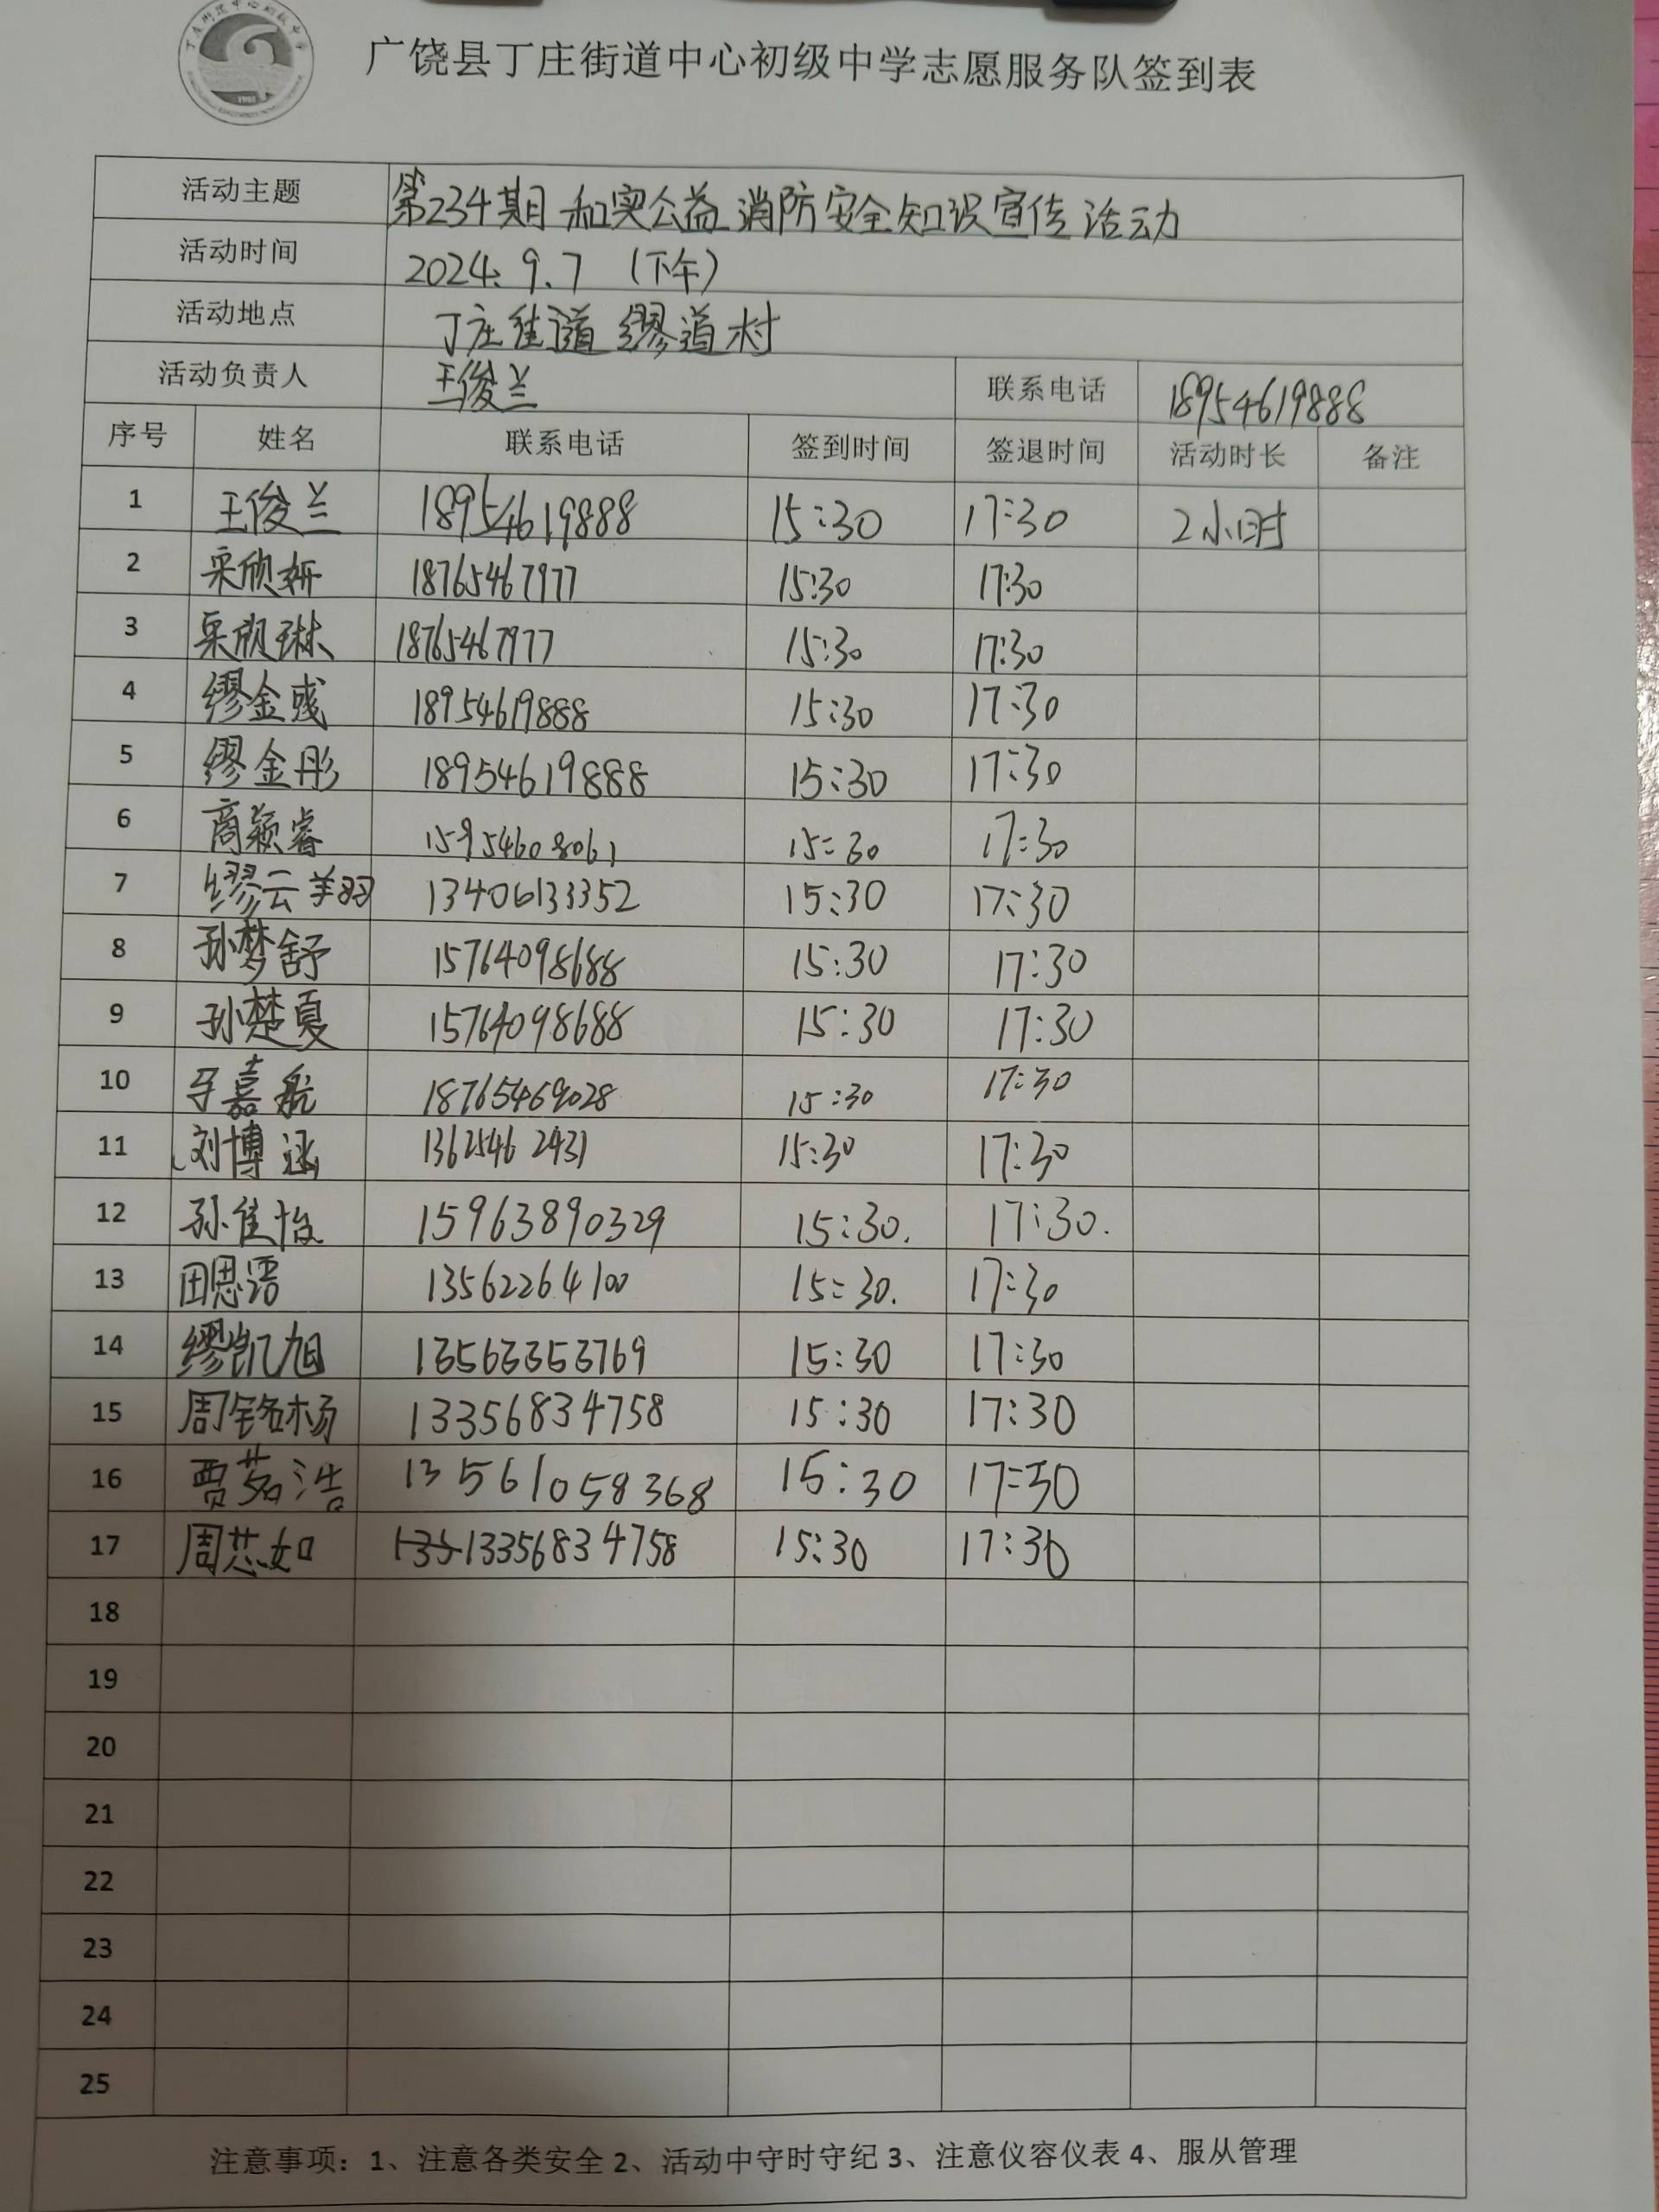 广饶县丁庄街道中心初级中学志愿服务队签到表
活动主题 第234期 和实公益 消防安全知识宣传活动
活动时间 2024.9.7 (下午)
活动地点 丁庄街道 缪道村
活动负责人 王俊兰 联系电话 18954619888
序号 姓名 联系电话 签到时间 签退时间 活动时长 备注
1 王俊兰 18954619888 15:30 17:30 2小时
2 采欣妍 18765467977 15:30 17:30
3 采欣琳 18765467977 15:30 17:30
4 缪金彧 18954619888 15:30 17:30
5 缪金彤 18954619888 15:30 17:30
6 商颖睿 15954608061 15:30 17:30
7 缪云翔 13406133352 15:30 17:30
8 孙梦舒 15764098688 15:30 17:30
9 孙楚夏 15764098688 15:30 17:30
10 嘉航 18765469028 15:30 17:30
11 刘博涵 13625462431 15:30 17:30
12 孙佳怡 15963890329 15:30. 17:30.
13 田思语 13562264100 15:30. 17:30
14 缪凯旭 13563353769 15:30 17:30
15 周铭杨 13356834758 15:30 17:30
16 贾茗浩 13561058368 15:30 17:30
17 周芯如 13356834758 15:30 17:30
18
19
20
21
22
23
24
25
注意事项：1、注意各类安全 2、活动中守时守纪 3、注意仪容仪表 4、服从管理